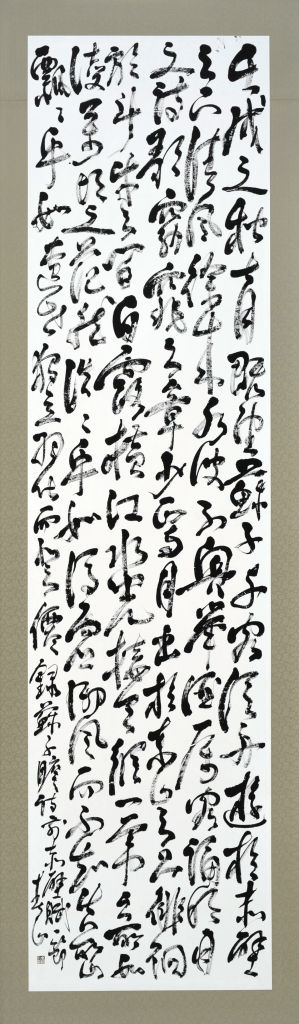 壬戌之秋七月既望蘇子与客泛舟遊於赤壁
之下清風徐来水波不興挙酒属客誦明月
之詩歌窈窕之章少焉月出於東山之上徘徊
於斗牛之間白露横江水光接天縦一葦之所如
凌萬頃之茫然浩々乎如馮虚御風而不知其所止
飄々乎如遺世獨立羽化而登僊 録蘇子瞻詩前赤壁賦一節